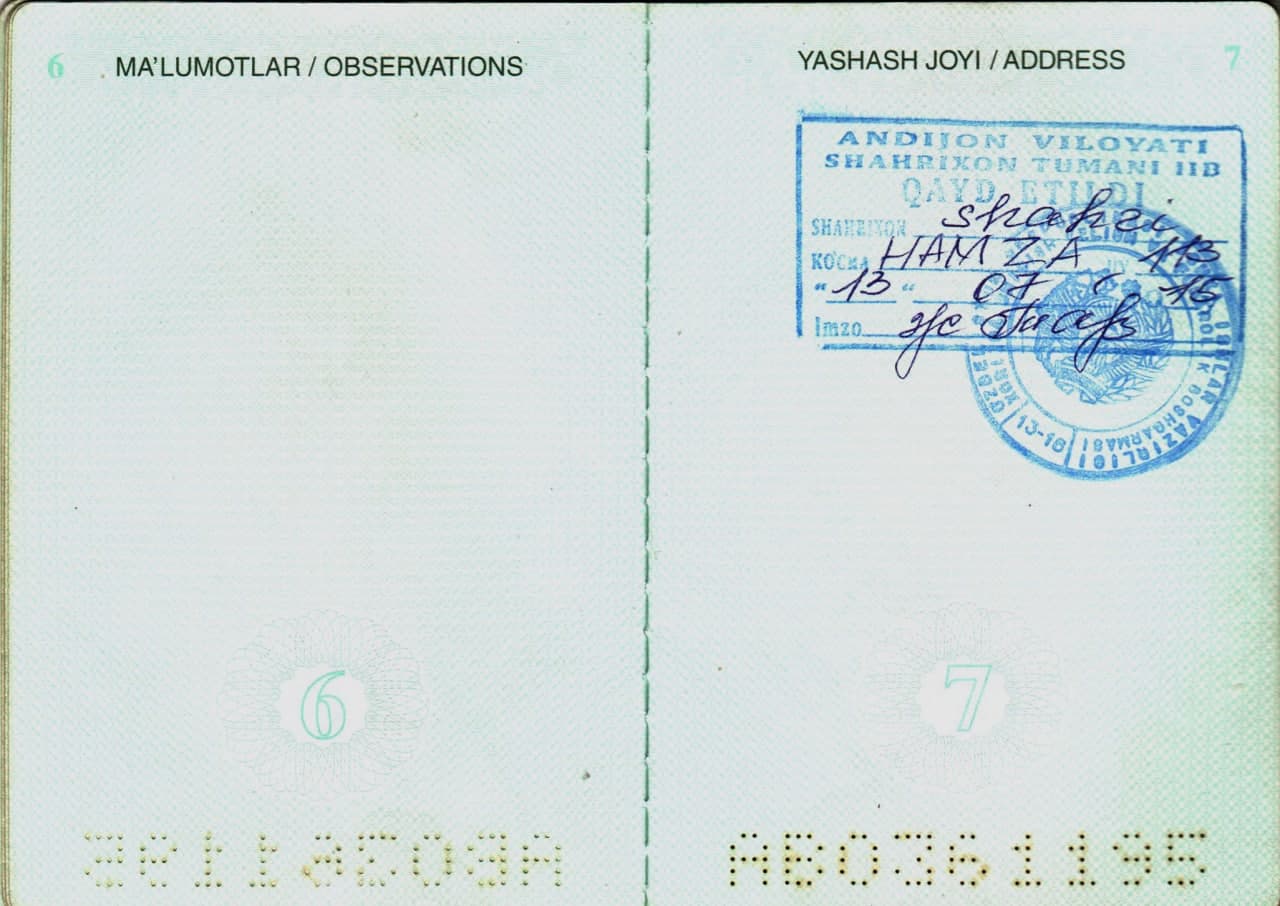 6 MA'LUMOTLAR / OBSERVATIONS
6
YASHASH JOYI / ADDRESS 7
ANDIJON VILOYATI
SHAHRIXON TUMANI IIB
QAYD ETILDI
SHAHRIXON shahri
KO'CHA HAMZA UY 113
"13" 07 15
Imzo
VAZIRLIGI
BOSHQARMASI
13-16
7
AB0361195